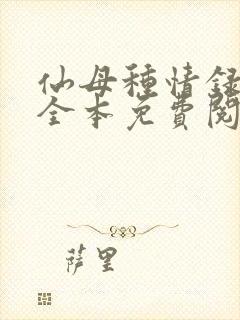 仙母種情錄
全本免費閱
萨里